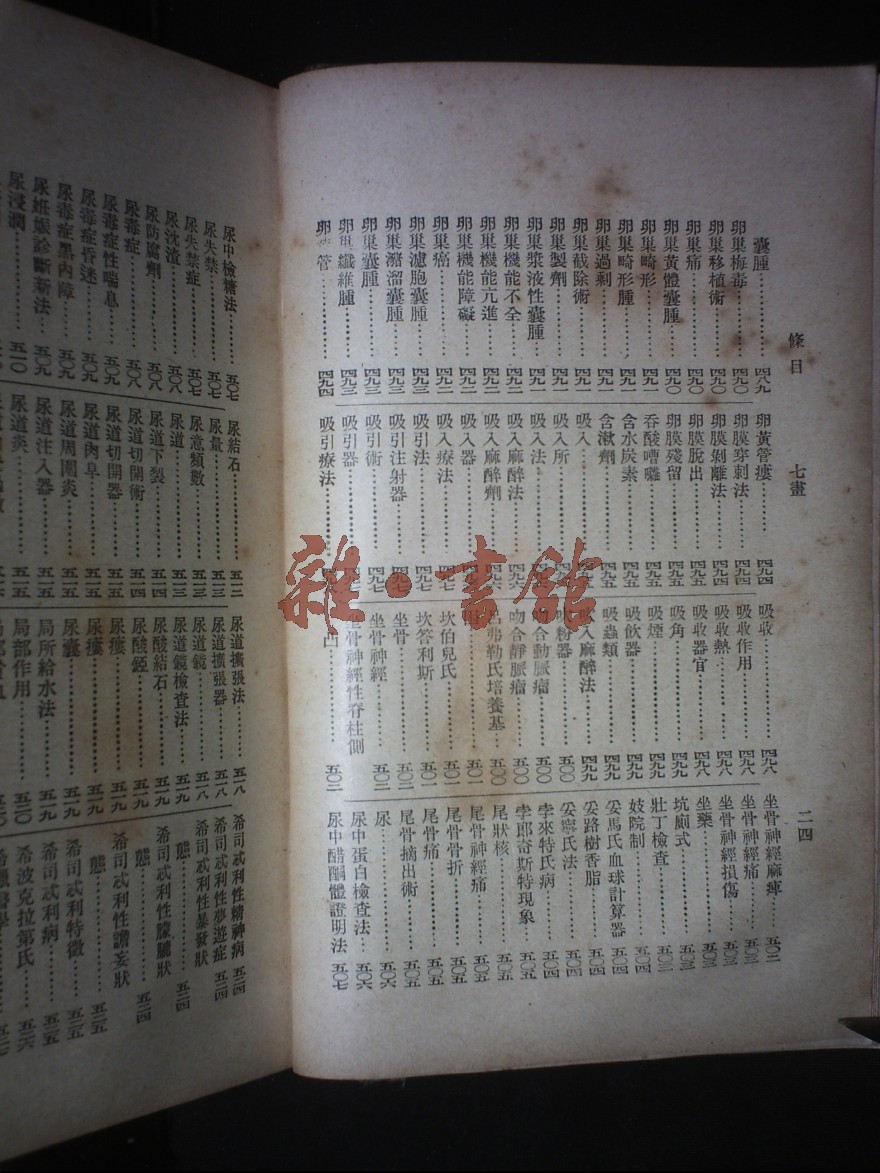 條目　七畫　二四
囊腫…………四八九
卵巢梅毒…………四九〇
卵巢移植術…………四九〇
卵巢痛…………四九〇
卵巢黃體囊腫…………四九〇
卵巢畸形…………四九一
卵巢畸形腫…………四九一
卵巢過剩…………四九一
卵巢截除術…………四九一
卵巢製劑…………四九一
卵巢漿液性囊腫…………四九一
卵巢機能不全…………四九二
卵巢機能亢進…………四九二
卵巢機能障礙…………四九二
卵巢癌…………四九二
卵巢濾胞囊腫…………四九三
卵巢瀦溜囊腫…………四九三
卵巢囊腫…………四九三
卵巢纖維腫…………四九三
管…………四九四
卵黃管瘻…………四九四
卵膜穿刺法…………四九四
卵膜剝離法…………四九四
卵膜脫出…………四九五
卵膜殘留…………四九五
吞酸嘈囃…………四九五
含水炭素…………四九五
含漱劑…………四九五
吸入…………四九五
吸入所…………
吸入法…………
吸入麻醉法…………四九六
吸入麻醉劑…………四九六
吸入器…………四九七
吸入療法…………四九七
吸引法…………四九七
吸引注射器…………四九七
吸引術…………四九七
吸引器…………
吸引療法…………
吸收…………四九八
吸收作用…………四九八
吸收熱…………四九八
吸收器官…………四九八
吸角…………四九九
吸煙…………四九九
吸飲器…………四九九
吸蟲類…………四九九
吸入麻醉法…………四九九
粉器…………五〇〇
吻合動脈瘤…………五〇〇
吻合靜脈瘤…………五〇〇
呂弗勒氏培養基…………五〇〇
…………五〇一
坎伯兒氏…………五〇一
坎答利斯…………五〇一
坐骨…………五〇二
坐骨神經…………五〇二
坐骨神經性脊柱側
凸…………五〇二
坐骨神經麻痺…………五〇二
坐骨神經痛…………五〇三
坐骨神經損傷…………五〇三
坐藥…………五〇三
坑廁式…………五〇三
壯丁檢查…………五〇三
妓院制…………五〇四
妥馬氏血球計算器…………五〇四
妥路樹香脂…………五〇四
妥寧氏法…………五〇四
孛來特氏病…………五〇四
孛郎奇斯特現象…………五〇五
尾狀核…………五〇五
尾骨神經痛…………五〇五
尾骨骨折…………五〇五
尾骨痛…………五〇五
尾骨摘出術…………五〇五
尿…………五〇六
尿中蛋白檢查法…………五〇六
尿中醋酮體證明法…………五〇七
尿中檢糖法…………五〇七
尿失禁…………五〇七
尿失禁症…………五〇七
尿沈渣…………五〇八
尿防腐劑…………五〇八
尿毒症…………五〇九
尿毒症性喘息…………五〇九
尿毒症昏迷…………五〇九
尿毒症黑內障…………五〇九
尿妊娠診斷新法…………五〇九
尿浸潤…………五一〇
尿結石…………五一二
尿量…………五一三
尿意類數…………五一三
尿道…………五一三
尿道下裂…………五一四
尿道切開術…………五一四
尿道切開器…………五一五
尿道肉阜…………五一五
尿道周圍炎…………五一五
尿道注入器…………五一五
尿道炎…………五一五
尿道擴張法…………五一八
尿道擴張器…………五一八
尿道鏡…………五一八
尿道鏡檢查法…………五一九
尿酸結石…………五一九
尿酸錏…………五一九
尿瘻…………五一九
尿瘻…………五一九
尿囊…………五一九
局所給水法…………五一九
局部作用…………五二〇
希司忒利性精神病…………五二四
希司忒利性夢遊症…………五二四
希司忒利性暴發狀
態…………五二四
希司忒利性朦朧狀
態…………五二四
希司忒利性譫妄狀
態…………五二五
希司忒利特徵…………五二五
希司忒利病…………五二五
希波克拉第氏…………五二六
雜·書館